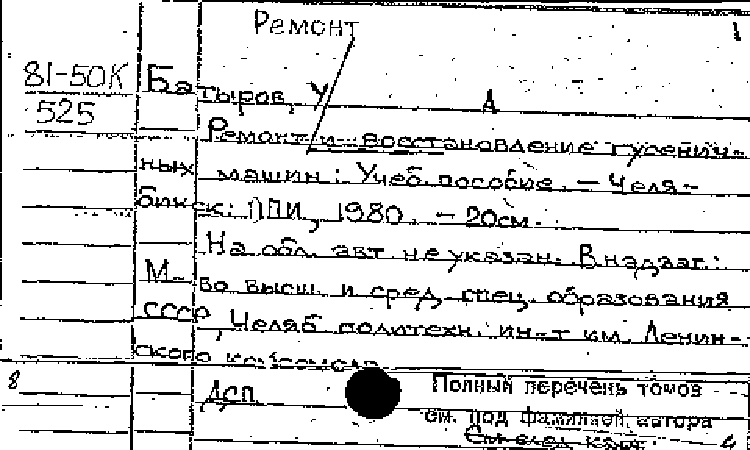 Ремонт 1
81-50К Батыров, У А
525
Ремонт и восстановление гусенич-
ных машин: Учеб. пособие. - Челя-
бинск: ЧПИ, 1980. - 20см.
На обл. авт. не указан. В надзаг.:
М-во высш. и сред. спец. образования
СССР, Челяб. политехн. ин-т им. Ленин-
ского комсомола
8 ДСП
Полный перечень томов
см. под фамилией автора
См. след. карт.